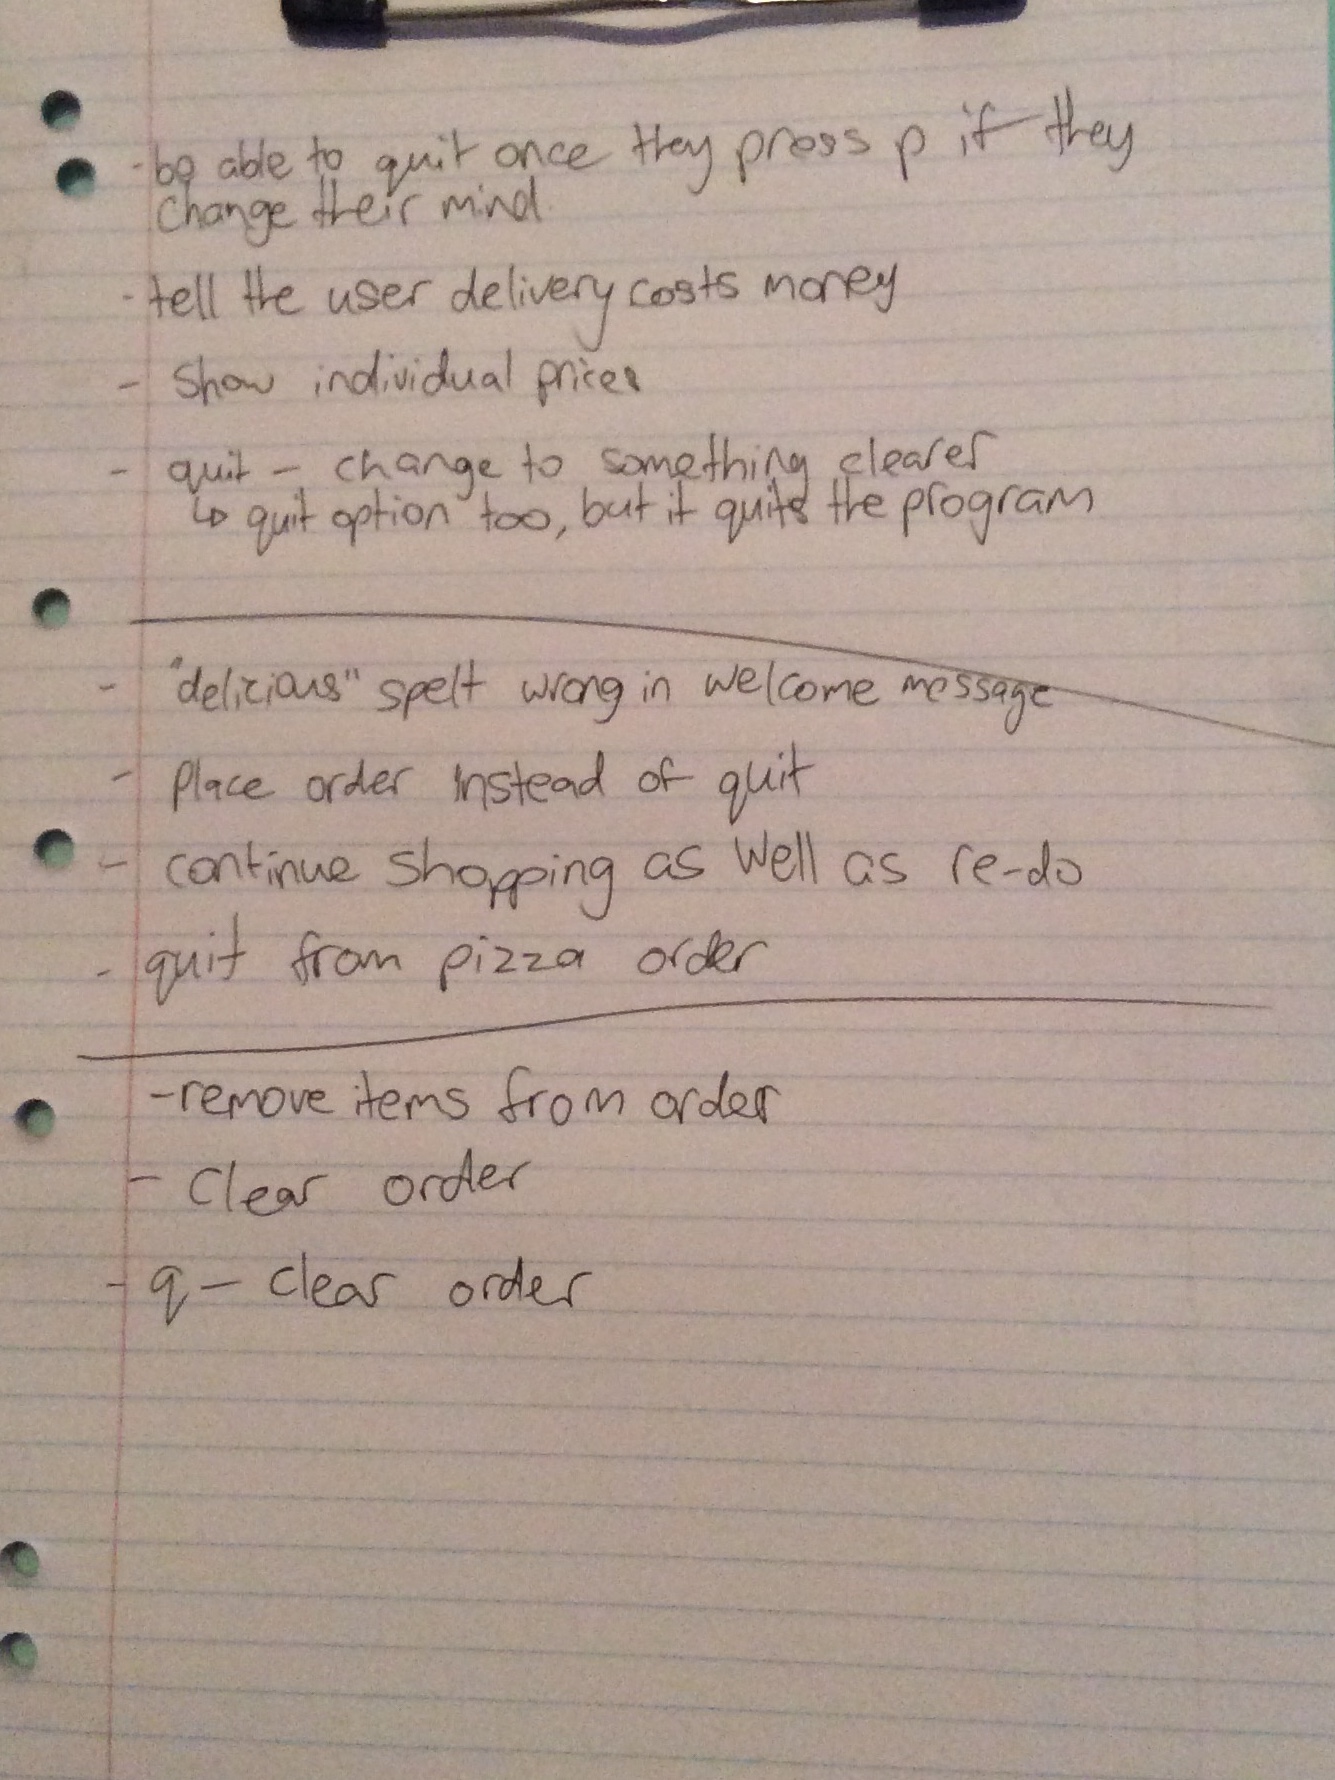 - be able to quit once they press p if they
change their mind.
- tell the user delivery costs money
- Show individual prices
- quit - change to something clearer
↳ quit option too, but it quits the program
- "delicious" spelt wrong in welcome message
- Place order instead of quit
- continue shopping as well as re-do
- quit from pizza order
- remove items from order
- Clear order
- q - clear order